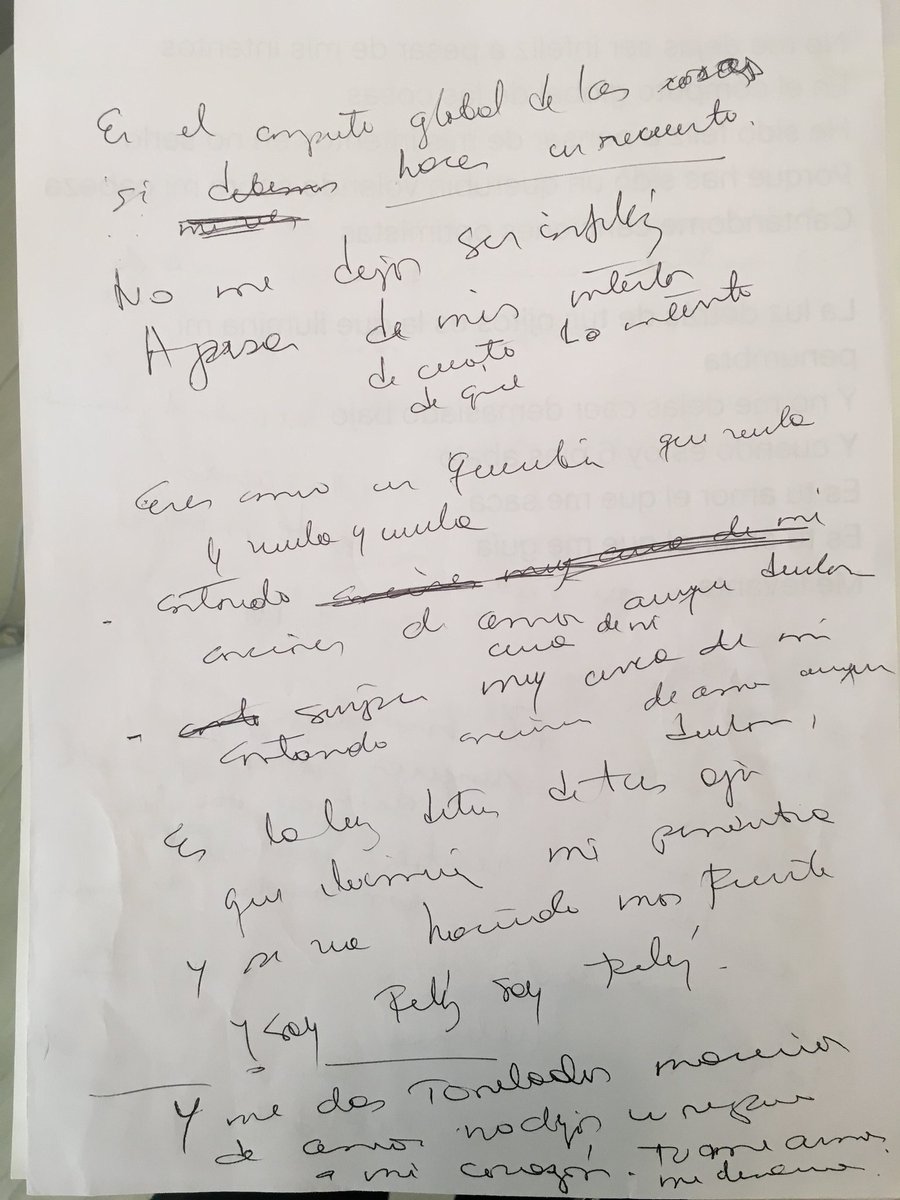 En el computo global de las cosas
si debemos hacer un recuento.
No me dejas ser infeliz
A pesar de mis intentos
de cuanto lo intento
de que
Eres como un Querubín que vuela
y vuela y vuela
- cantando canciones muy cerca de mi
canciones de amor aunque duelan
cerca de mi
- siempre muy cerca de mi
cantando canciones de amor aunque
duelan,
Es la luz detras de tus ojos
que ilumina mi penumbra
Y se va haciendo mas fuerte
Y soy Feliz soy Feliz.
Y me das Toneladas
de amor no dejas
a mi corazón. Tu me